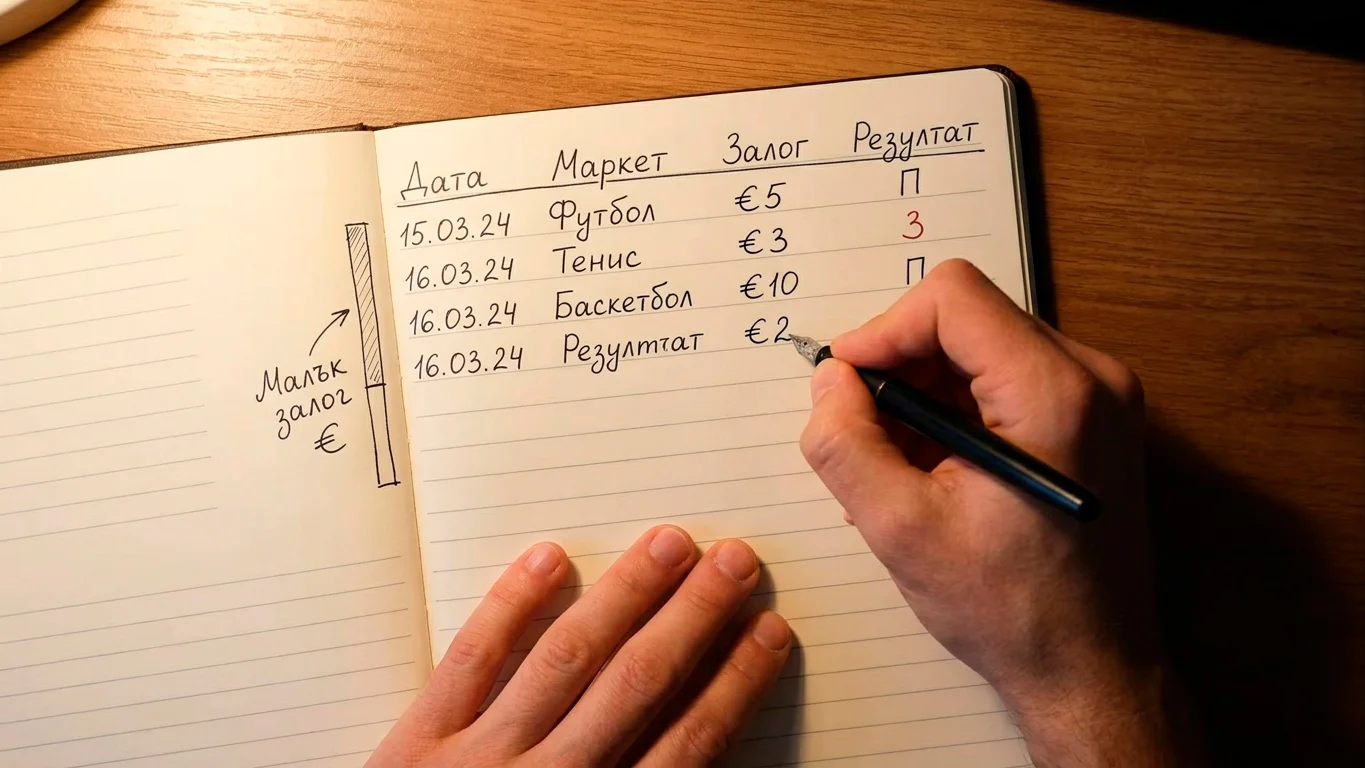 Дата Маркет Залог Резултат
15.03.24 Футбол €5 П
16.03.24 Тенис €3 З
16.03.24 Баскетбол €10 П
16.03.24 Резултtat €2
Малък
залог
€